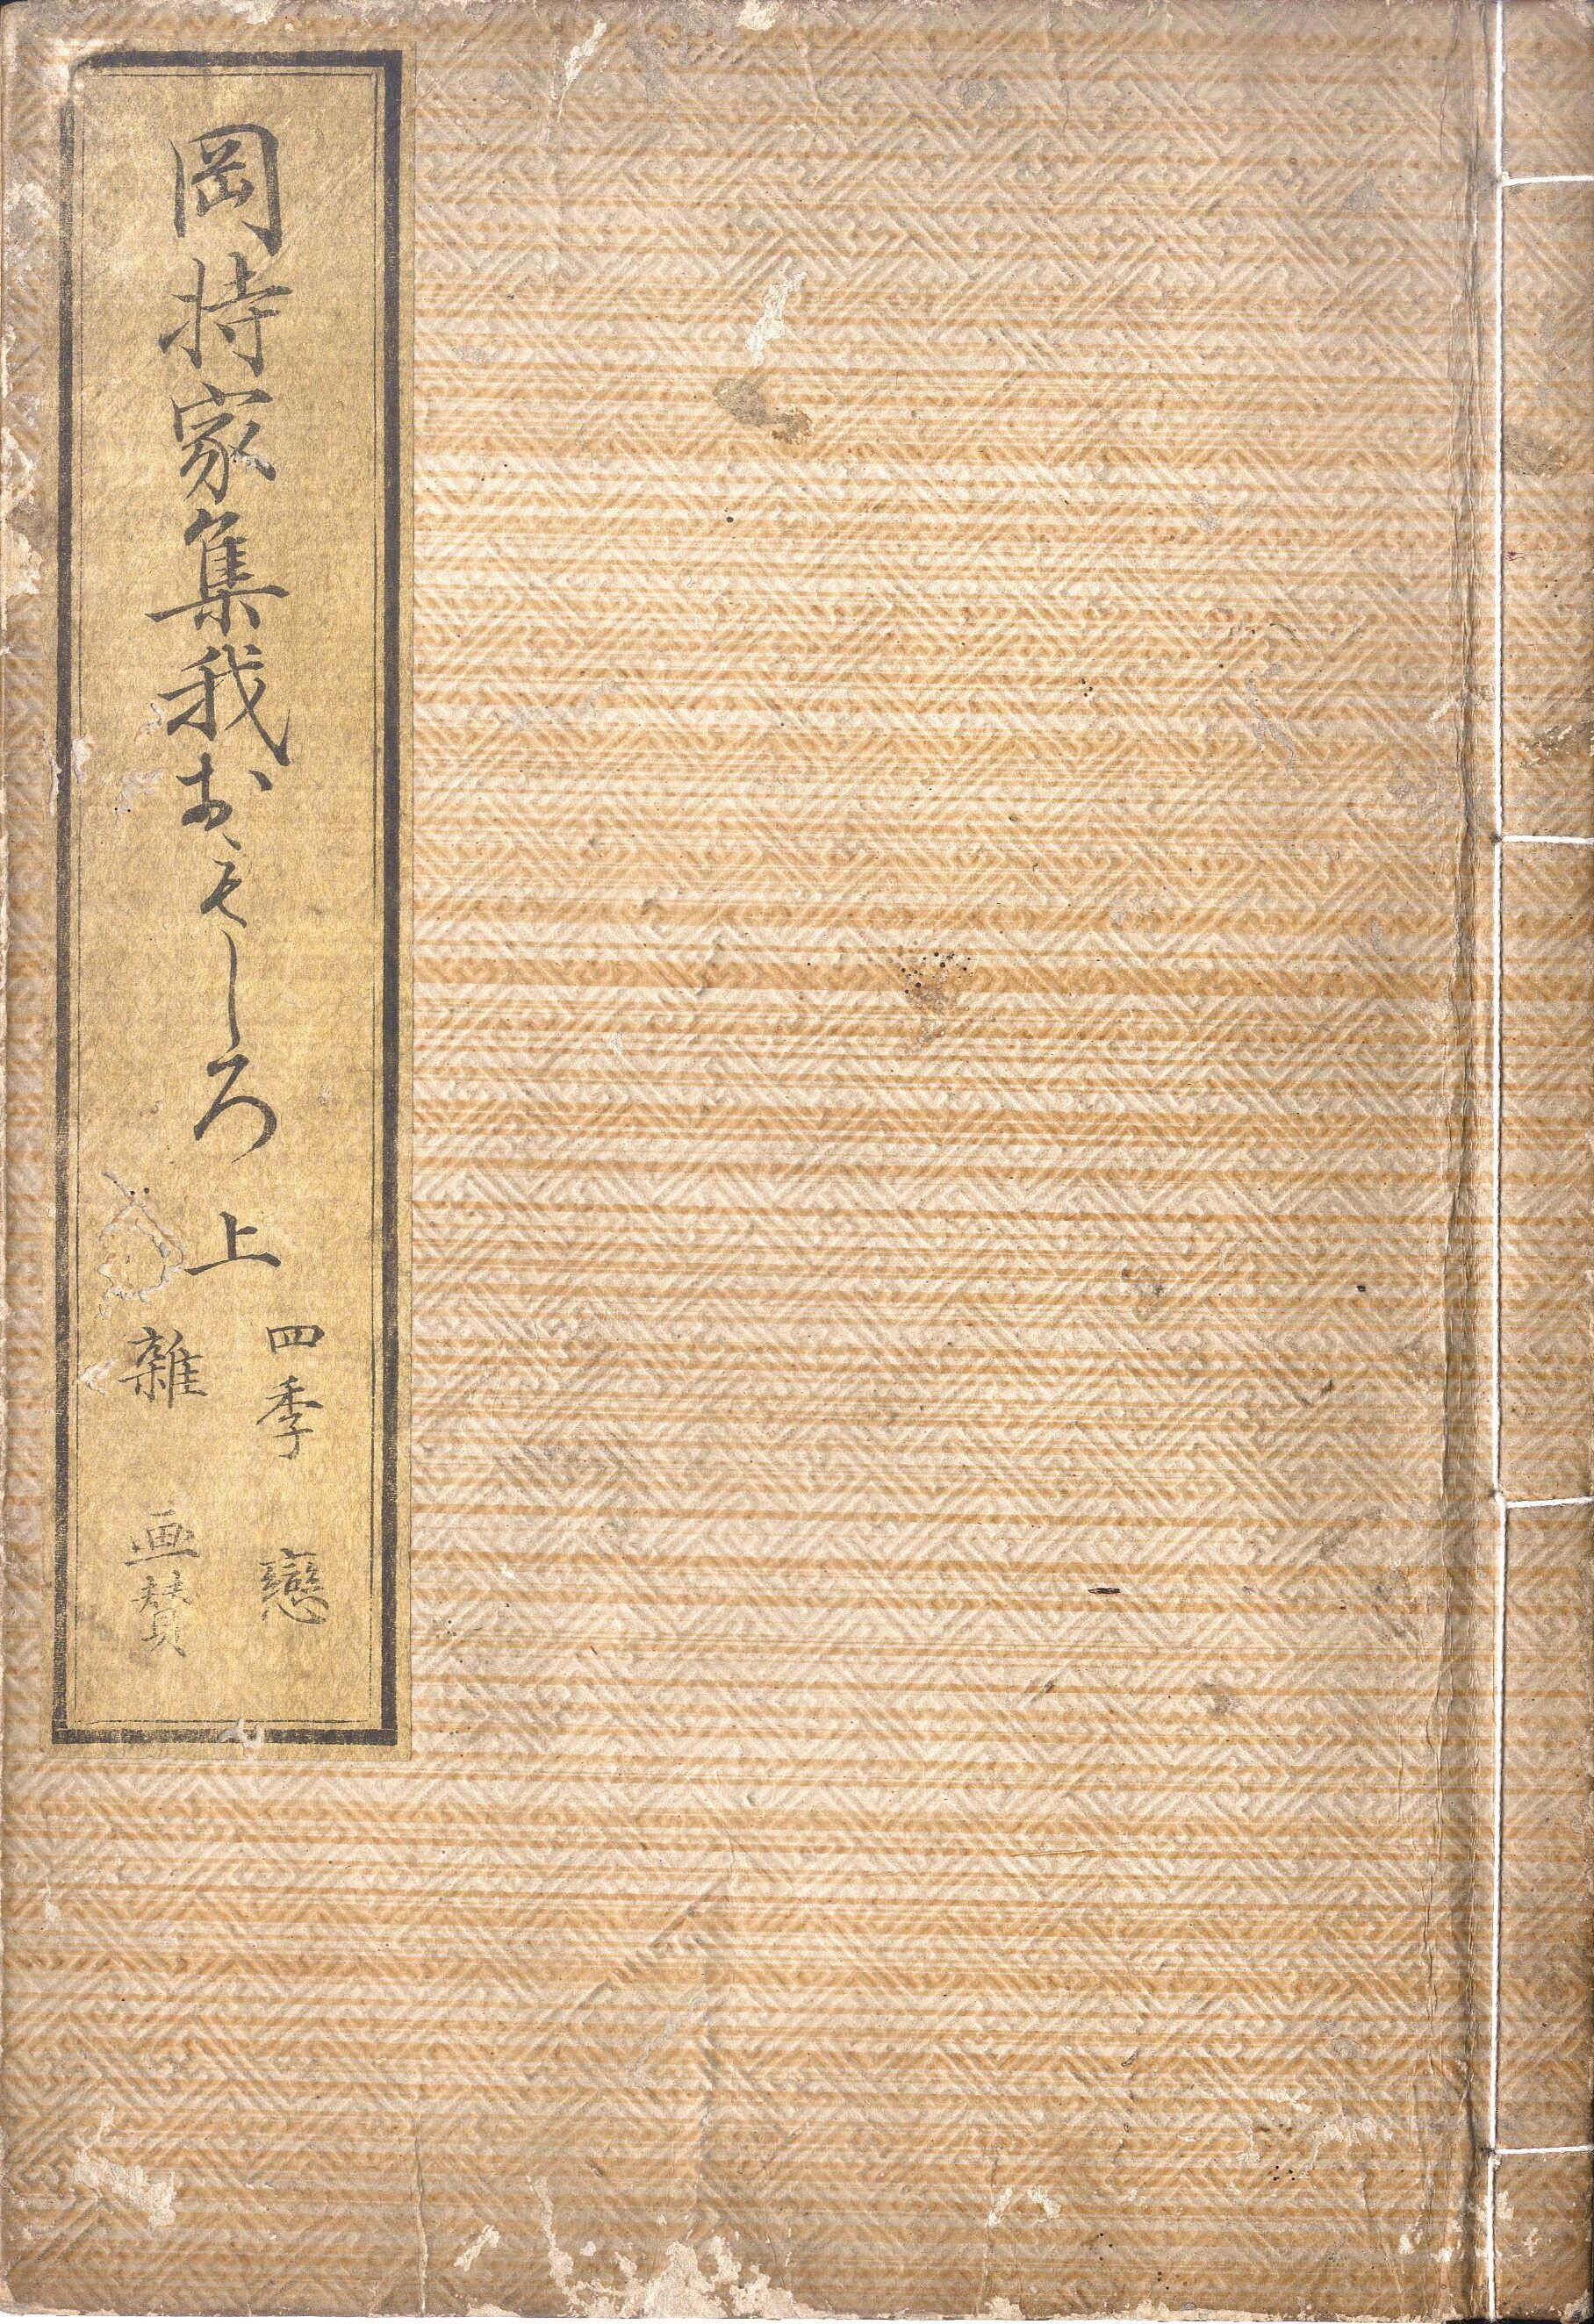 岡持家集我おもしろ 上
四季 戀
雜 画賛